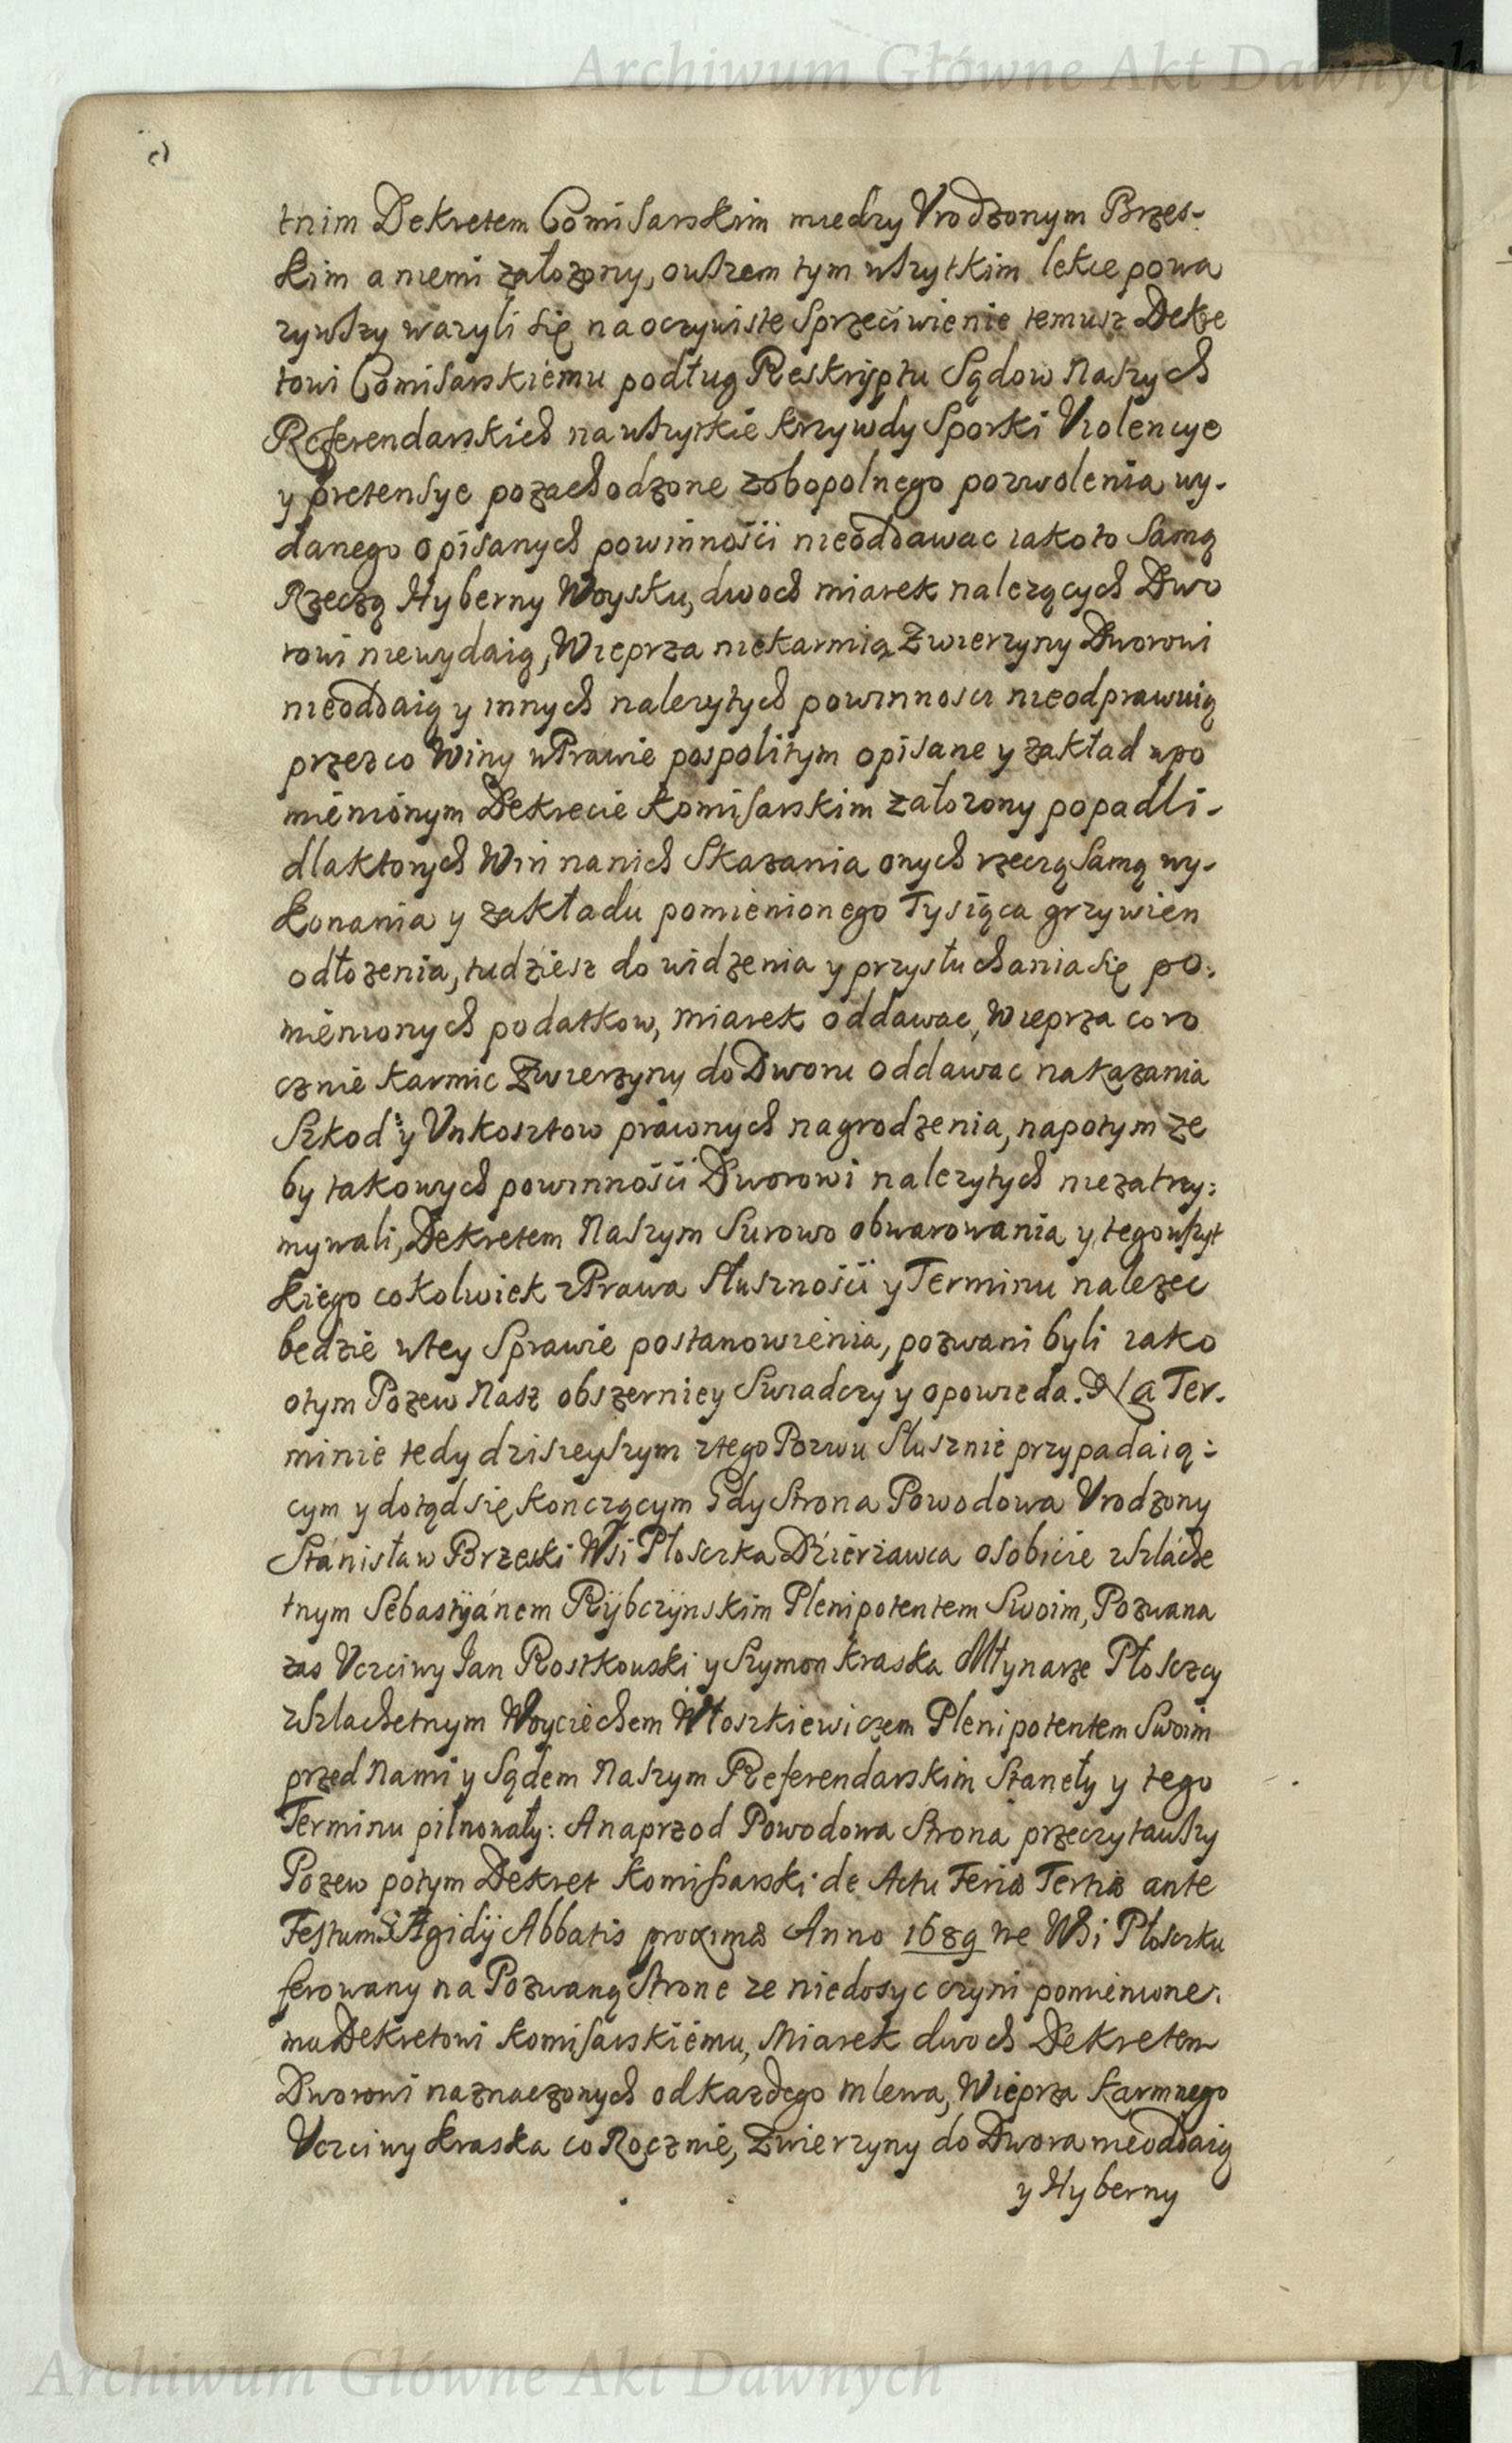 Archiwum Główne Akt Dawnych
tnim Dekretem Comisarskim miedzy Vrodzonym Brzes-
kim a niemi załozony, owszem tym wszytkim lekce powa
zywszy wazyli się na oczywiste Sprzeciwienie temusz Dekre
towi Comisarskiemu podług Reskryptu Sądow Naszych
Referendarskich na wszytkie krzywdy Sporki Violencye
y pretensye pozachodzone zobopolnego pozwolenia wy-
danego opisanych powinności nieoddawac iako to Samą
Rzeczą Hyberny Woysku, dwoch miarek nalezących Dwo
rowi niewydaią, Wieprza niekarmią Zwierzyny Dworowi
nieoddaią y innych nalezytych powinnosci nieodprawuią
przez co Winy w Prawie pospolitym opisane y zakład w po
mienionym Dekrecie Komisarskim załozony popadli-
dla ktorych Win na nich Skazania onych rzeczą Samą wy-
konania y zakładu pomienionego Tysiąca grzywien
odłozenia, tudziesz do widzenia y przysłuchania się po:
mienionych podatkow, miarek oddawac, Wieprza coro
cznie karmic Zwierzyny do Dworu oddawac nakazania
Szkod y Vnkosztow prawnych nagrodzenia, napotym ze
by takowych powinności Dworowi nalezytych niezatrzy:
mywali, Dekretem Naszym Surowo obwarowania y tego wszyt
kiego cokolwiek z Prawa Słuszności y Terminu nalezec
bedzie w tey Sprawie postanowienia, pozwani byli iako
o tym Pozew Nasz obszerniey Swiadczy y opowieda. Na Ter-
minie tedy dzisieyszym z tego Pozwu Słusznie przypadaią:
cym y dotąd się konczącym Gdy Strona Powodowa Vrodzony
Stanisław Brzeski Wsi Płosczka Dzierzawca osobicie z Szlache
tnym Sebastyánem Rÿbczÿnskim Plenipotentem Swoim, Pozwana
zas Vczciwy Jan Rostkowski y Szymon kraska Młynarze Płosczcy
z Szlachetnym Woyciechem Włoszkiewiczem Plenipotentem Swoim
przed Nami y Sądem Naszym Referendarskim Staneły y tego
Terminu pilnowały: A naprzod Powodowa Strona przeczytawszy
Pozew potym Dekret Komissarski de Actu Feria Tertia ante
Festum S. Ægidÿ Abbatis proxima Anno 1689 we Wsi Płosczku
ferowany na Pozwaną Strone ze niedosyc czyni pomienione:
mu Dekretowi Komisarskiemu, Miarek dwoch Dekretem
Dworowi naznaczonych od kazdego mlewa, Wieprza karmnego
Vczciwy kraska co Rocznie, Zwierzyny do Dwora nieoddaią
y Hyberny
Archiwum Główne Akt Dawnych